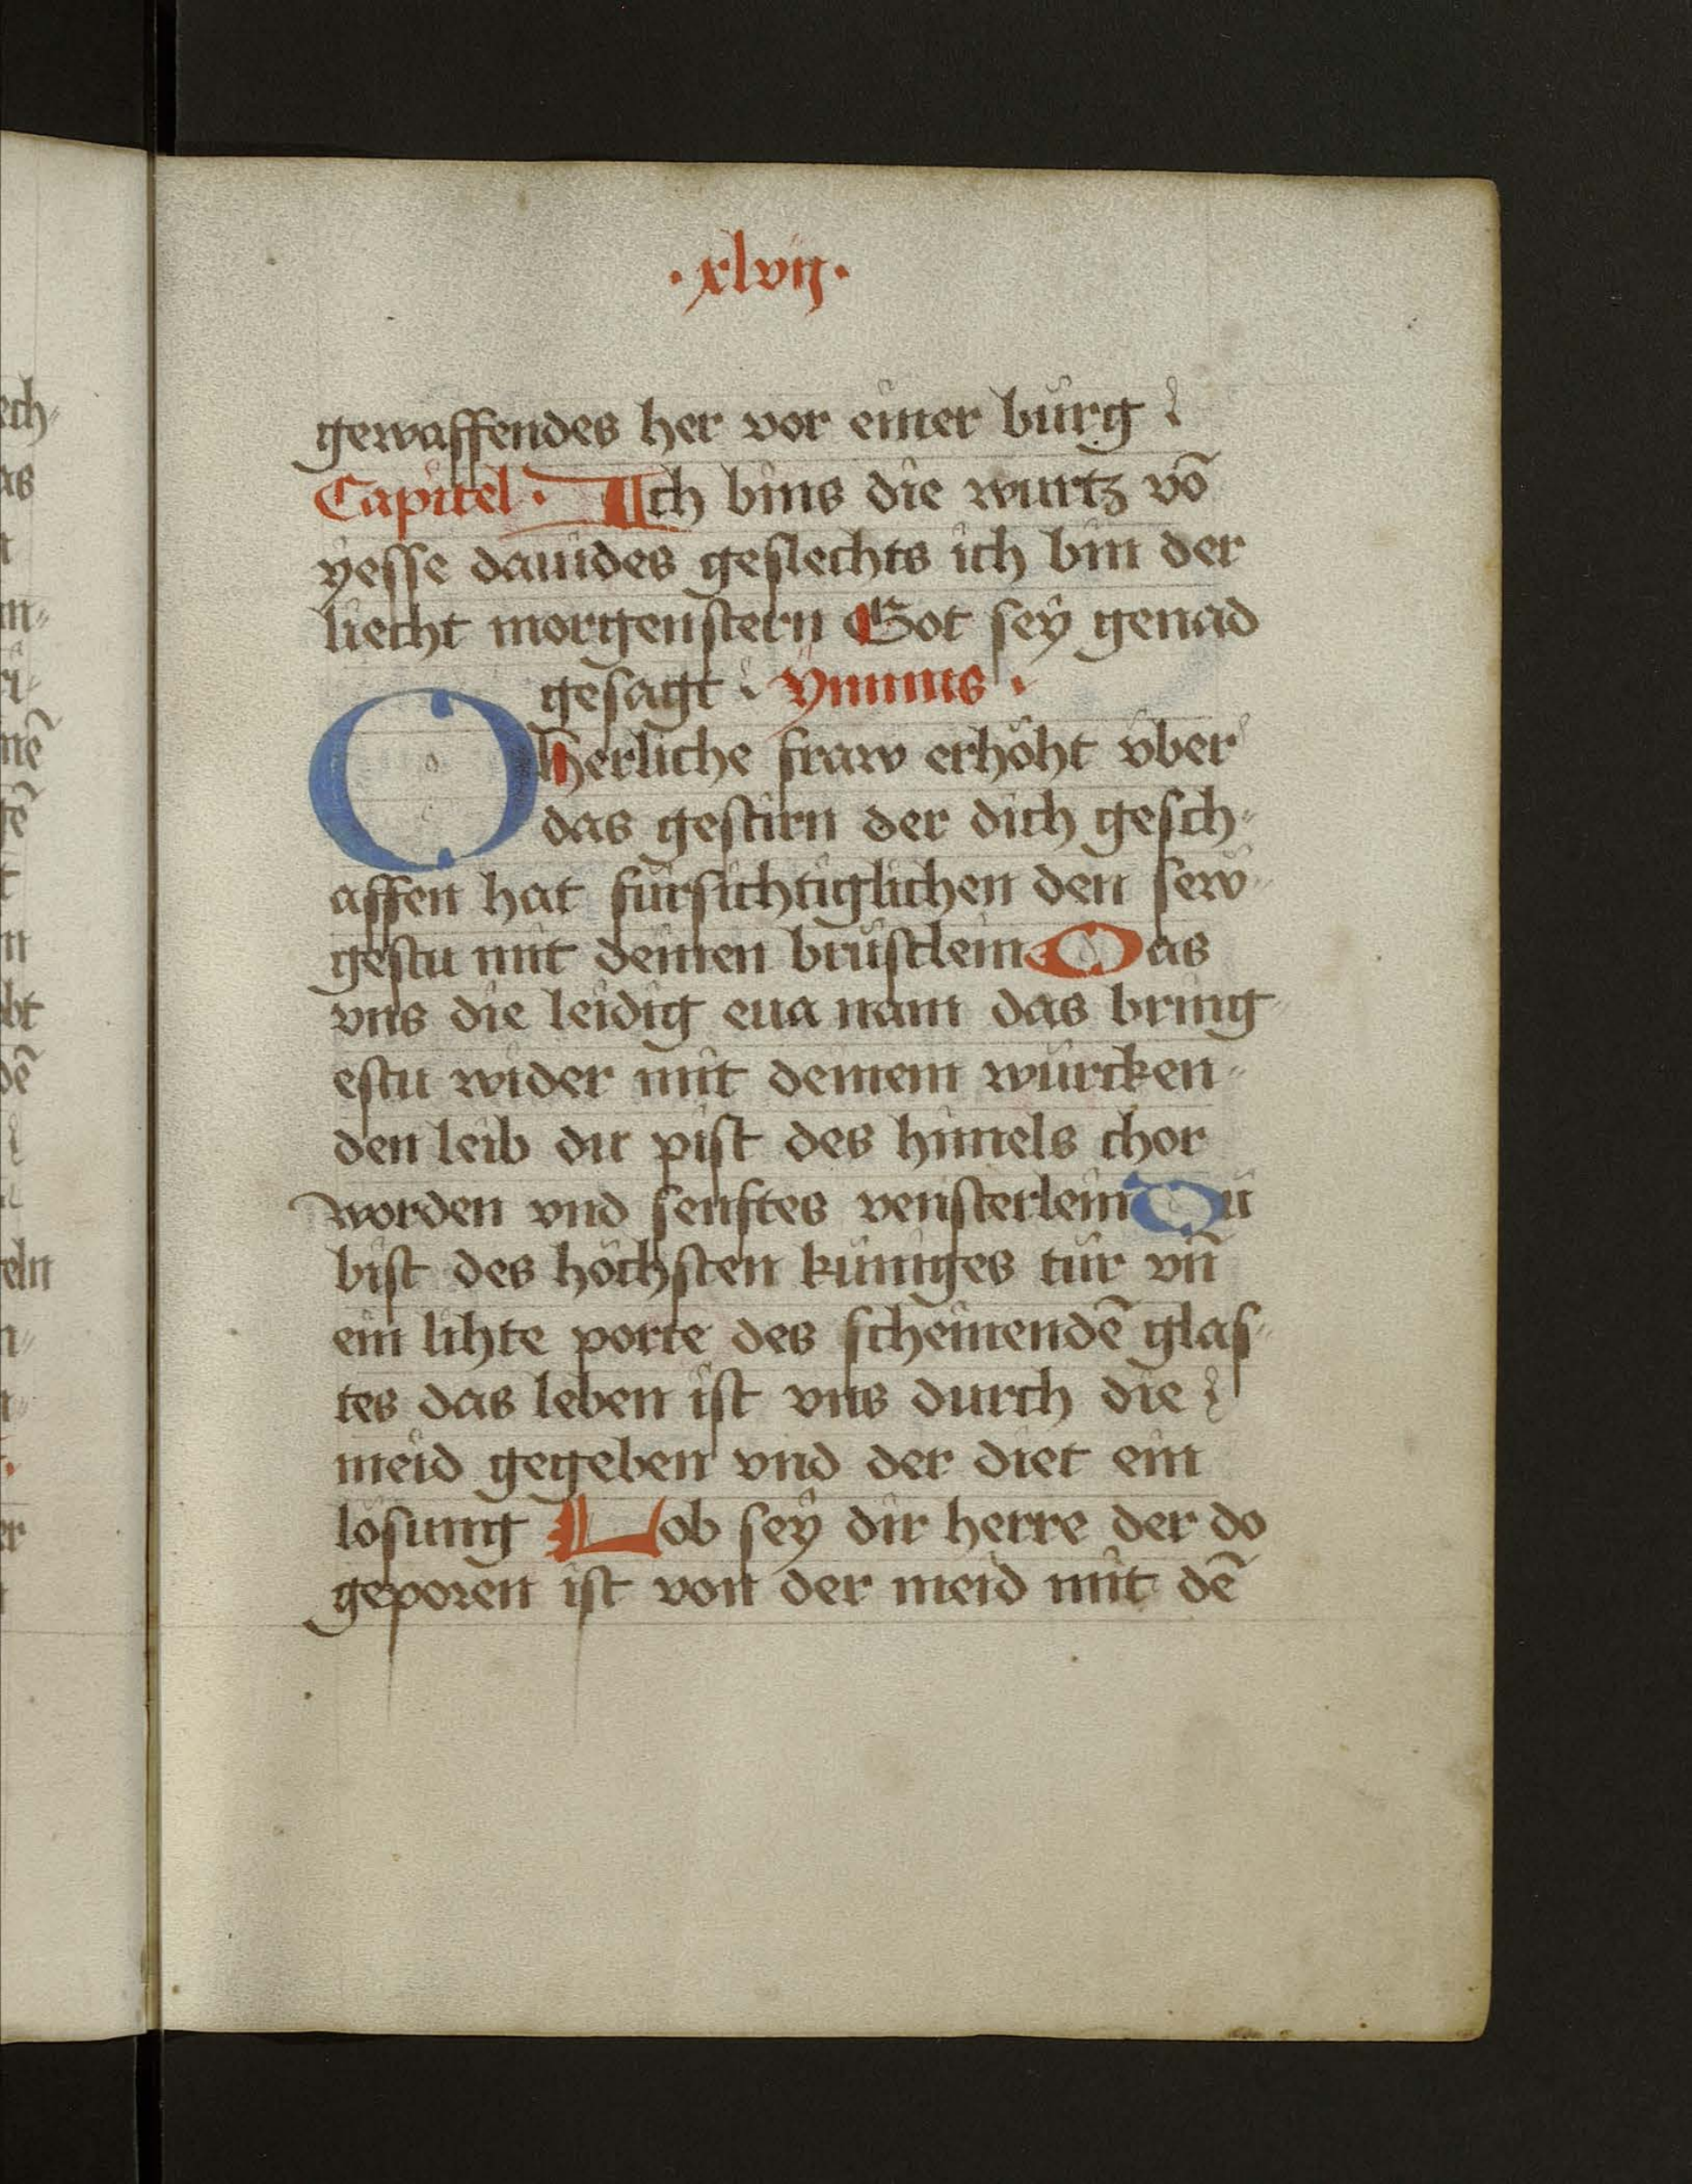 ·xlvij·
gewaffendes her vor einer burg
Capitel· Ich bins die wurtz vō
yesse dauides geslechts ich bin der
liecht morgenstern Got sey genad
gesagt · ymnus ·
O herliche fraw erhöht vber
das gestirn der dich gesch-
affen hat fürsichtiglichen den sew-
gestu mit deinen brüstlein Das
vns die leidig eua nam das bring-
estu wider mit deinem würcken-
den leib du pist des himels chor
worden vnd senftes vensterlein Du
bist des höchsten küniges tür vn̄
ein lihte porte des scheinendē glas-
tes das leben ist vns durch die
meid gegeben vnd der diet ein
lösung Lob sey dir herre der do
geporen ist von der meid mit dē